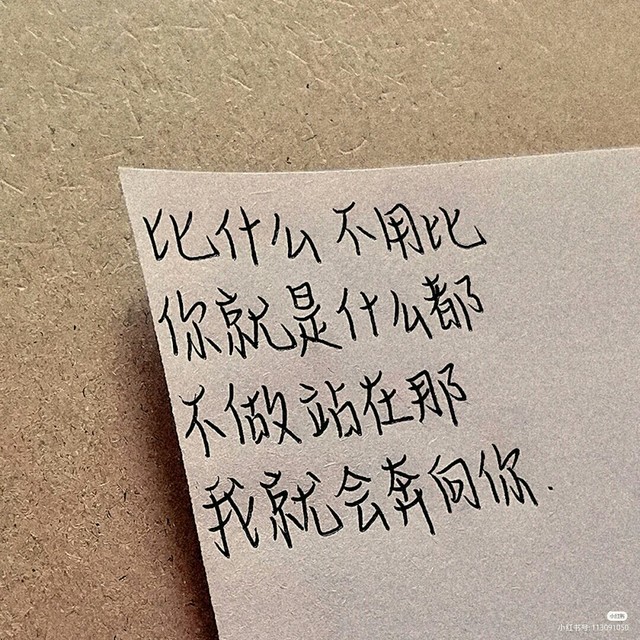 比什么 不用比
你就是什么都
不做站在那
我就会奔向你.
小红书
小红书号:113091050